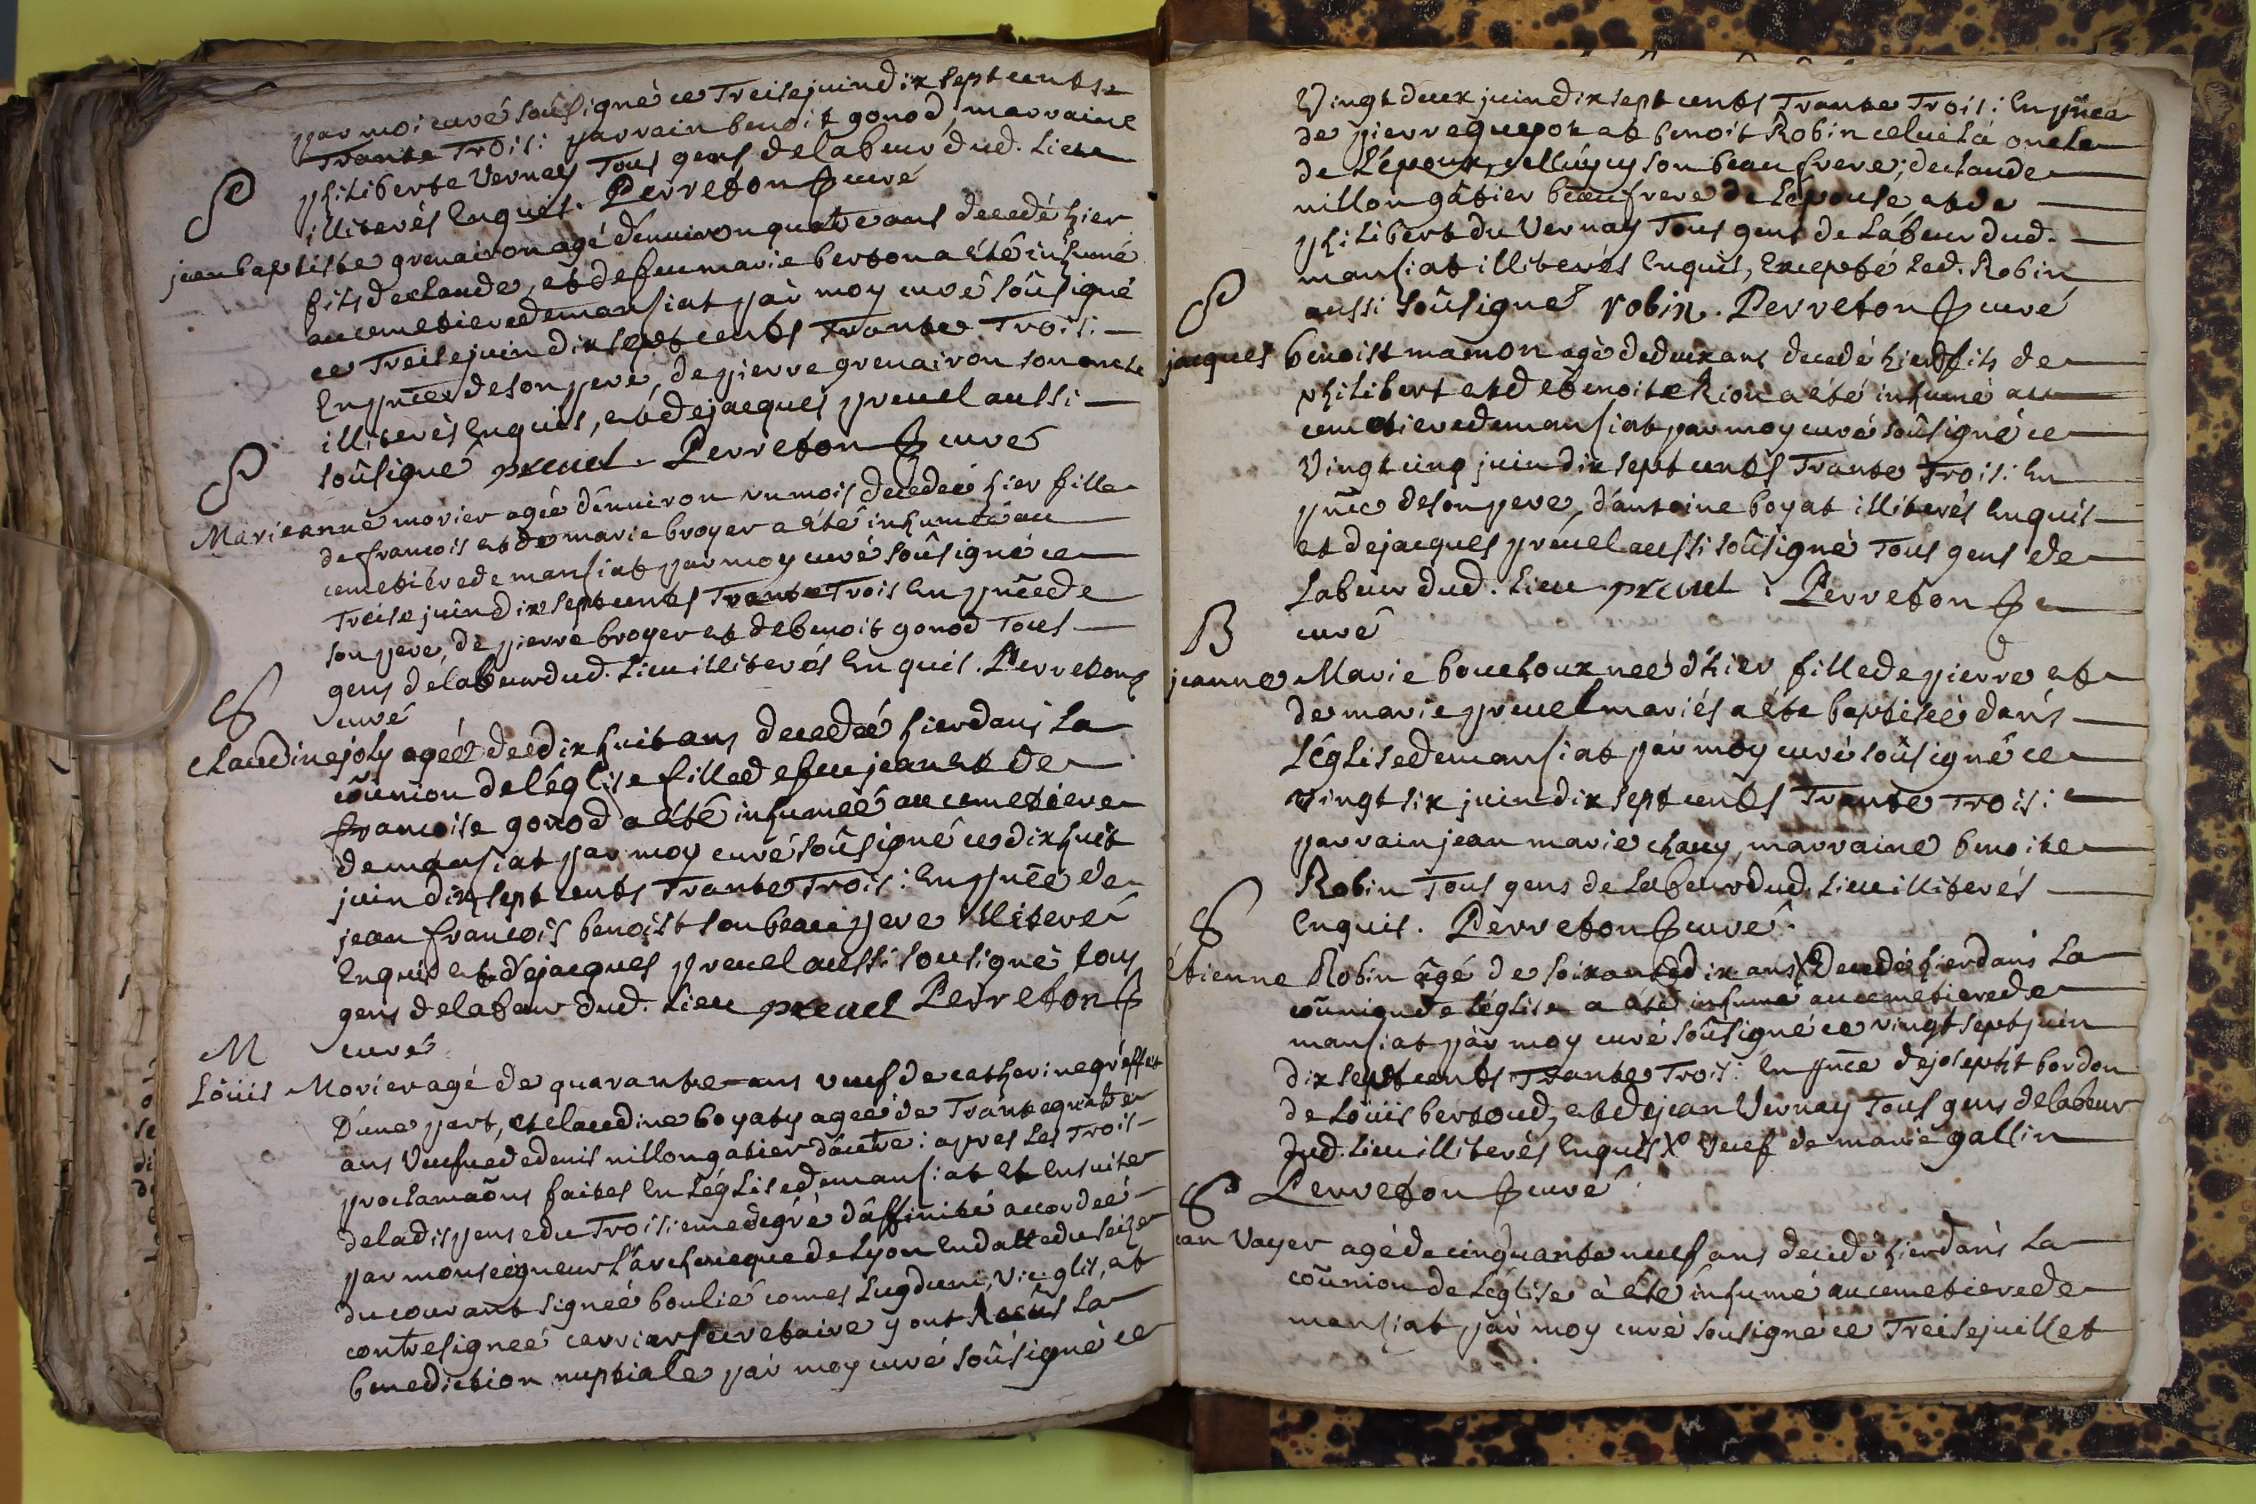 par moi curé soûsigné ce Treise juin dix sept cents
Trante Trois: parrain benoit gonod, marraine
philiberte Vernay Tous gens de labeur dud. Lieu
illiterés Enquis. Perreton curé
S
jean baptiste grenairon agé d'enuiron quatre ans decedé hier
fils de claude, et de feu marie berton a été inhumé
au cemetiere de mansiat par moy curé soûsigné
ce Treise juin dix sept cents Trante Trois:
En pñce de son pere, de pierre grenairon son oncle
illiterés Enquis, et de jacques preuel aussi
soûsigné preuel. Perreton curé
S
Marieanne morier agée d'enuiron un mois decedeé hier fille
de francois et de marie broyer a été inhumeé au
cemetiére de mansiat par moy curé soûsigné ce
Treise juin dix sept cents Trante Trois En pñce de
son pere, de pierre broyer et de benoit gonod Tous
gens de labeur dud. Lieu illiterés Enquis. Perreton
curé
S
claudine joly ageé de dix huit ans decedeé hier dans La
coũnion de l'église fille de feu jean et de
francoise gonod a été inhumeé au cemetiere
de mansiat par moy curé soûsigné ce dix huit
juin dix sept cents Trante Trois: En pñce de
jean francois benoist son beau pere illiteré
Enquis et de jacques preuel aussi soûsigné tous
gens de labeur dud. Lieu preuel Perreton
curé
M
Loüis Morier agé de quarante ans veuf de catherine greffet
D'une part, et claudine boyaty ageé de Trante quatre
ans Veufue de denis nillon gatier d'autre: apres les Trois
proclamaõns faites En l'église de mansiat Et Ensuite
de la dispense du Troisieme degré d'affinité accordeé
par monseigneur L'archeueque de Lyon En datte du seize
du courant signeé boulié comes Lugduni, Vic. glis, et
contresigneé carrier secretaire y ont Recûs La
benediction nuptiale par moy curé soûsigné ce
Vingt deux juin dix sept cents Trante Trois: En pñce
de pierre guepon et benoit Robin celui là oncle
de L'époux, celluy cy son beau frere, de claude
nillon gâtier beau frere de L'épouse, et de
philibert du Vernay Tous gens de Labeur dud.
mansiat illiterés Enquis, Excepté Led. Robin
aussi soûsigné robin. Perreton curé
S
jacques benoist mamon agé de deux ans decedé hier fils de
philibert et de benoite Rion a été inhumé au
cemetiere de mansiat par moy curé soûsigné ce
Vingt cinq juin dix sept cents Trante Trois: En
pñce de son pere, d'antoine boyat illiterés Enquis
et de jacques preuel aussi soûsigné Tous gens de
Labeur dud. Lieu preuel: Perreton
curé
B
jeanne Marie bouchoux neé d'hier fille de pierre et
de marie preuel mariés a été baptiseé dans
L'église de mansiat par moy curé soûsigné ce
vingt six juin dix sept cents Trante Trois:
parrain jean marie chany, marraine benoite
Robin Tous gens de Labeur dud. Lieu illiterés
Enquis. Perreton curé.
S
étienne Robin âgé de soixante dix ans X Decedé hier dans La
coũnion de l'église a été inhumé au cemetiere de
mansiat par moy curé soûsigné ce vingt sept juin
dix sept cents Trante Trois: En pñce de joseph bordon
de Loüis bertoud, et de jean Vernay Tous gens de labeur
dud. Lieu illiterés Enquis X Veuf de marie gallin
Perreton curé
S
ean Vayer agé de cinquante neuf ans decedé hier dans La
coũnion de L'église à été inhumé au cemetiere de
mansiat par moy curé soûsigné ce Treise juillet